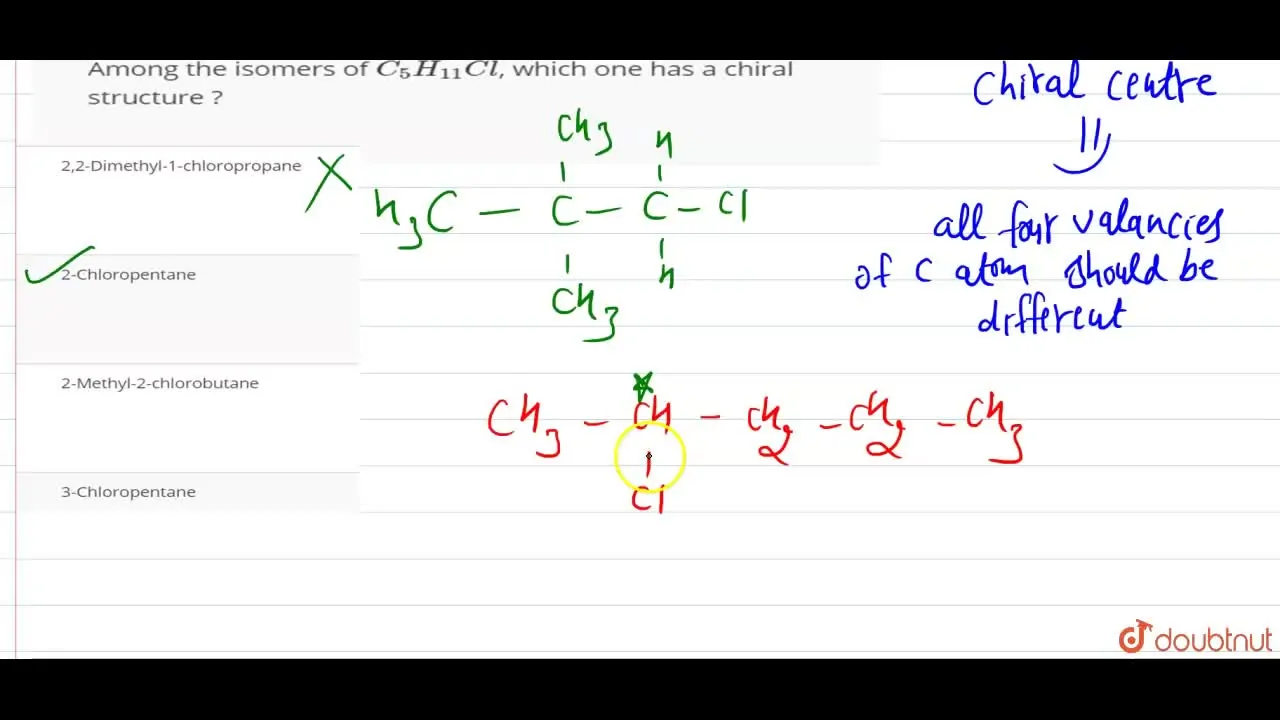 Among the isomers of C₅H₁₁Cl, which one has a chiral
structure ?
2,2-Dimethyl-1-chloropropane
2-Chloropentane
2-Methyl-2-chlorobutane
3-Chloropentane
CH₃ H
H₃C — C — C — Cl
CH₃ H
Chiral centre
all four valancies
of C atom should be
different
CH₃ — CH — CH₂ — CH₂ — CH₃
Cl
doubtnut